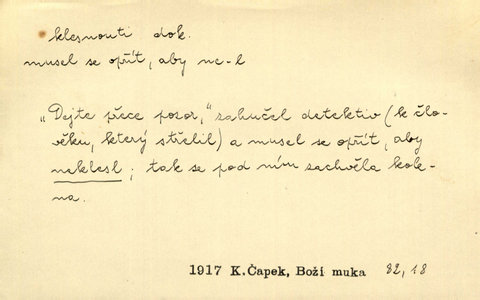 klesnouti dok.
musel se opřít, aby ne-l
„Dejte přece pozor,“ zahučel detektiv (k člo-
věku, který střelil) a musel se opřít, aby
neklesl; tak se pod ním zachvěla kole-
na.
1917 K.Čapek, Boží muka 82,18